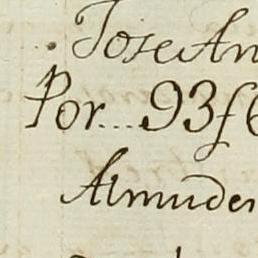 Jose An
Por...93f6
Almudes